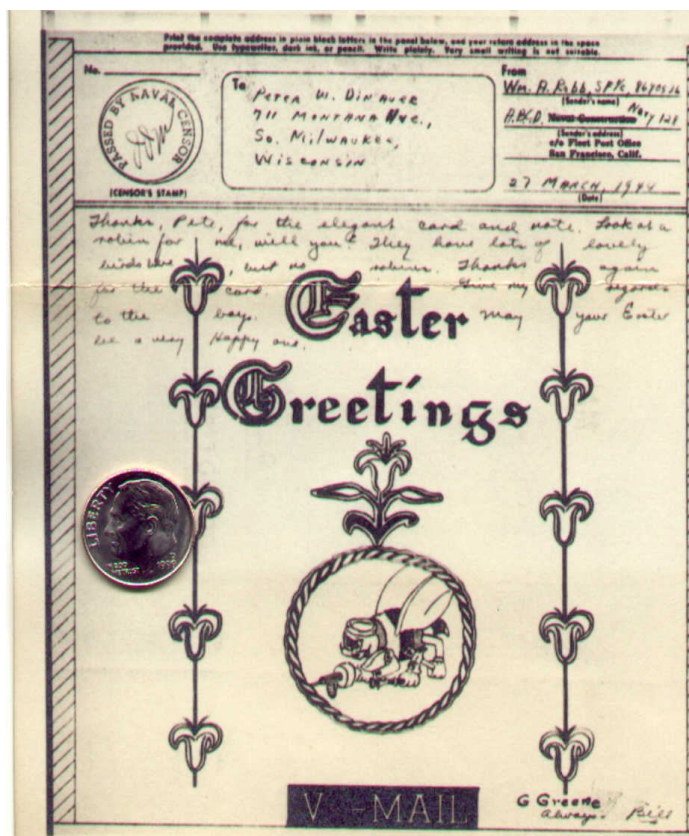 Print the complete address in plain block letters in the panel below, and your return address in the space
provided. Use typewriter, dark ink, or pencil. Write plainly. Very small writing is not suitable.
No.
PASSED BY NAVAL CENSOR
(CENSOR'S STAMP)
To
PETER W. DINAUER
711 MONTANA AVE.,
SO. MILWAUKEE,
WISCONSIN
From
Wm. A. Robb, SP
(Sender's name)
Naval Construction Navy 128
(Sender's address)
c/o Fleet Post Office
San Francisco, Calif.
27 MARCH, 1944
(Date)
Thanks, Pete, for the elegant card and note. Look at a
robin for me, will you? They have lots of lovely
birds here, but no robins. Thanks again
for the card. Give my regards
to the boys. May your Easter
be a very Happy one.
Easter
Greetings
LIBERTY
V···-MAIL
G Greene
Always. Bill